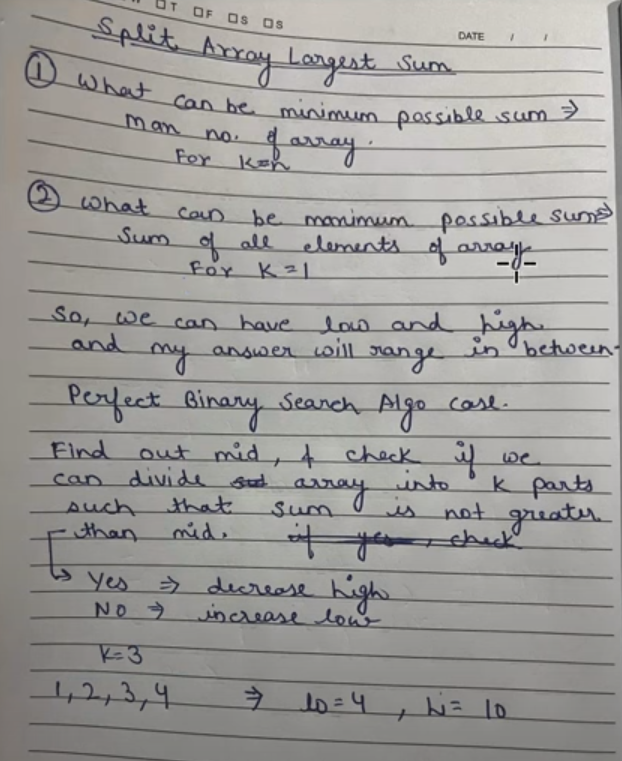 T F S S
DATE / /
Split Array Largest Sum
① What can be minimum possible sum ⇒
Max no. of array.
For K=n
② What can be maximum possible sum ⇒
Sum of all elements of array
For K=1
So, we can have low and high
and my answer will range in between.
Perfect Binary Search Algo case.
Find out mid, & check if we
can divide array into K parts
such that sum is not greater
than mid. if yes, check
Yes ⇒ decrease high
NO ⇒ increase low
K=3
1, 2, 3, 4 ⇒ lo=4, hi= 10